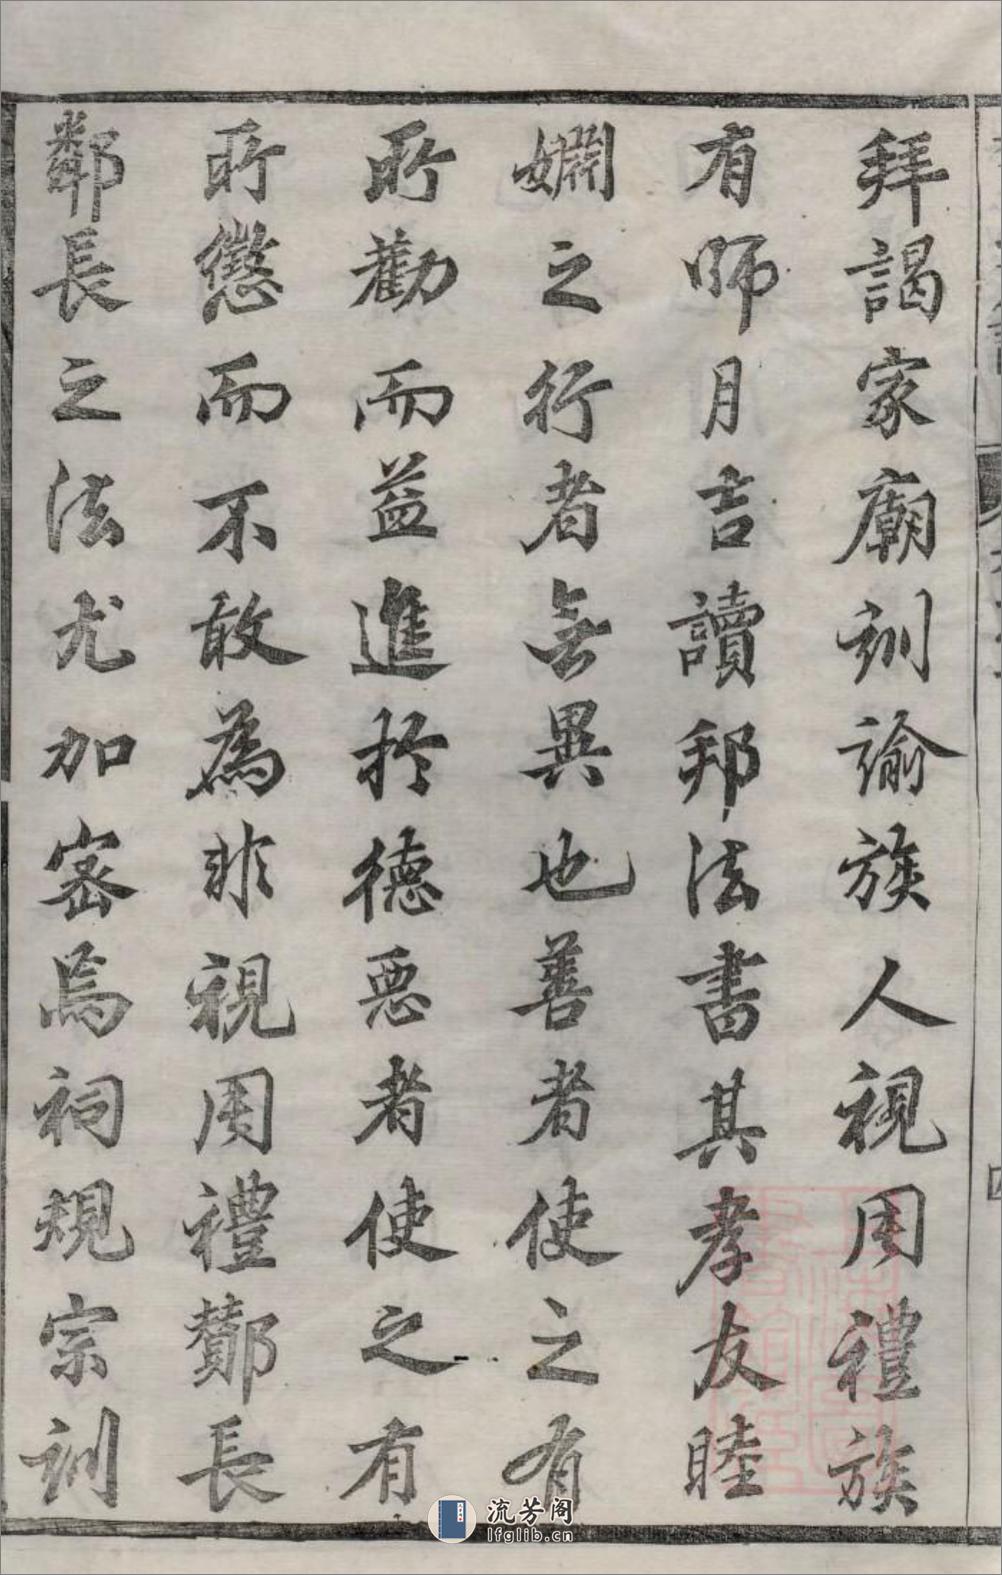 拜謁家廟訓諭族人視周禮族
有師月吉讀邦法書其孝友睦
婣之行者無異也善者使之有
所勸而益進扵德惡者使之有
所懲而不敢為非視周禮酇長
鄰長之法尤加密焉祠規宗訓
流芳阁
lfglib.cn